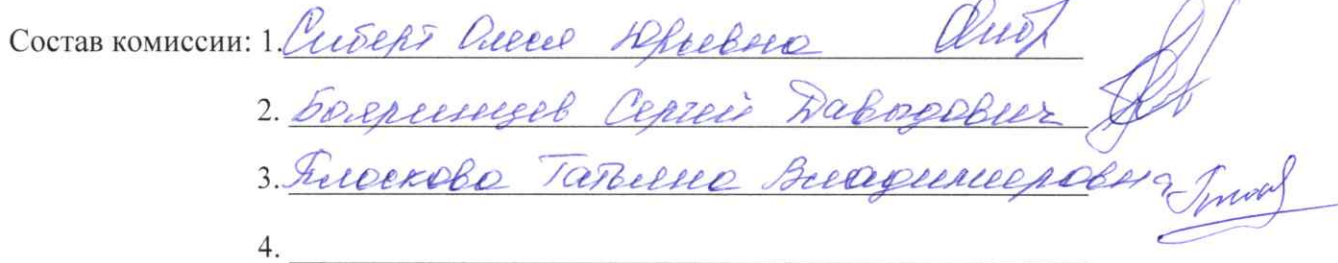 Состав комиссии: 1. Сиберт Олеся Юрьевна
2. Бояринцев Сергей Давыдович
3. Плоскова Татьяна Владимировна
4.